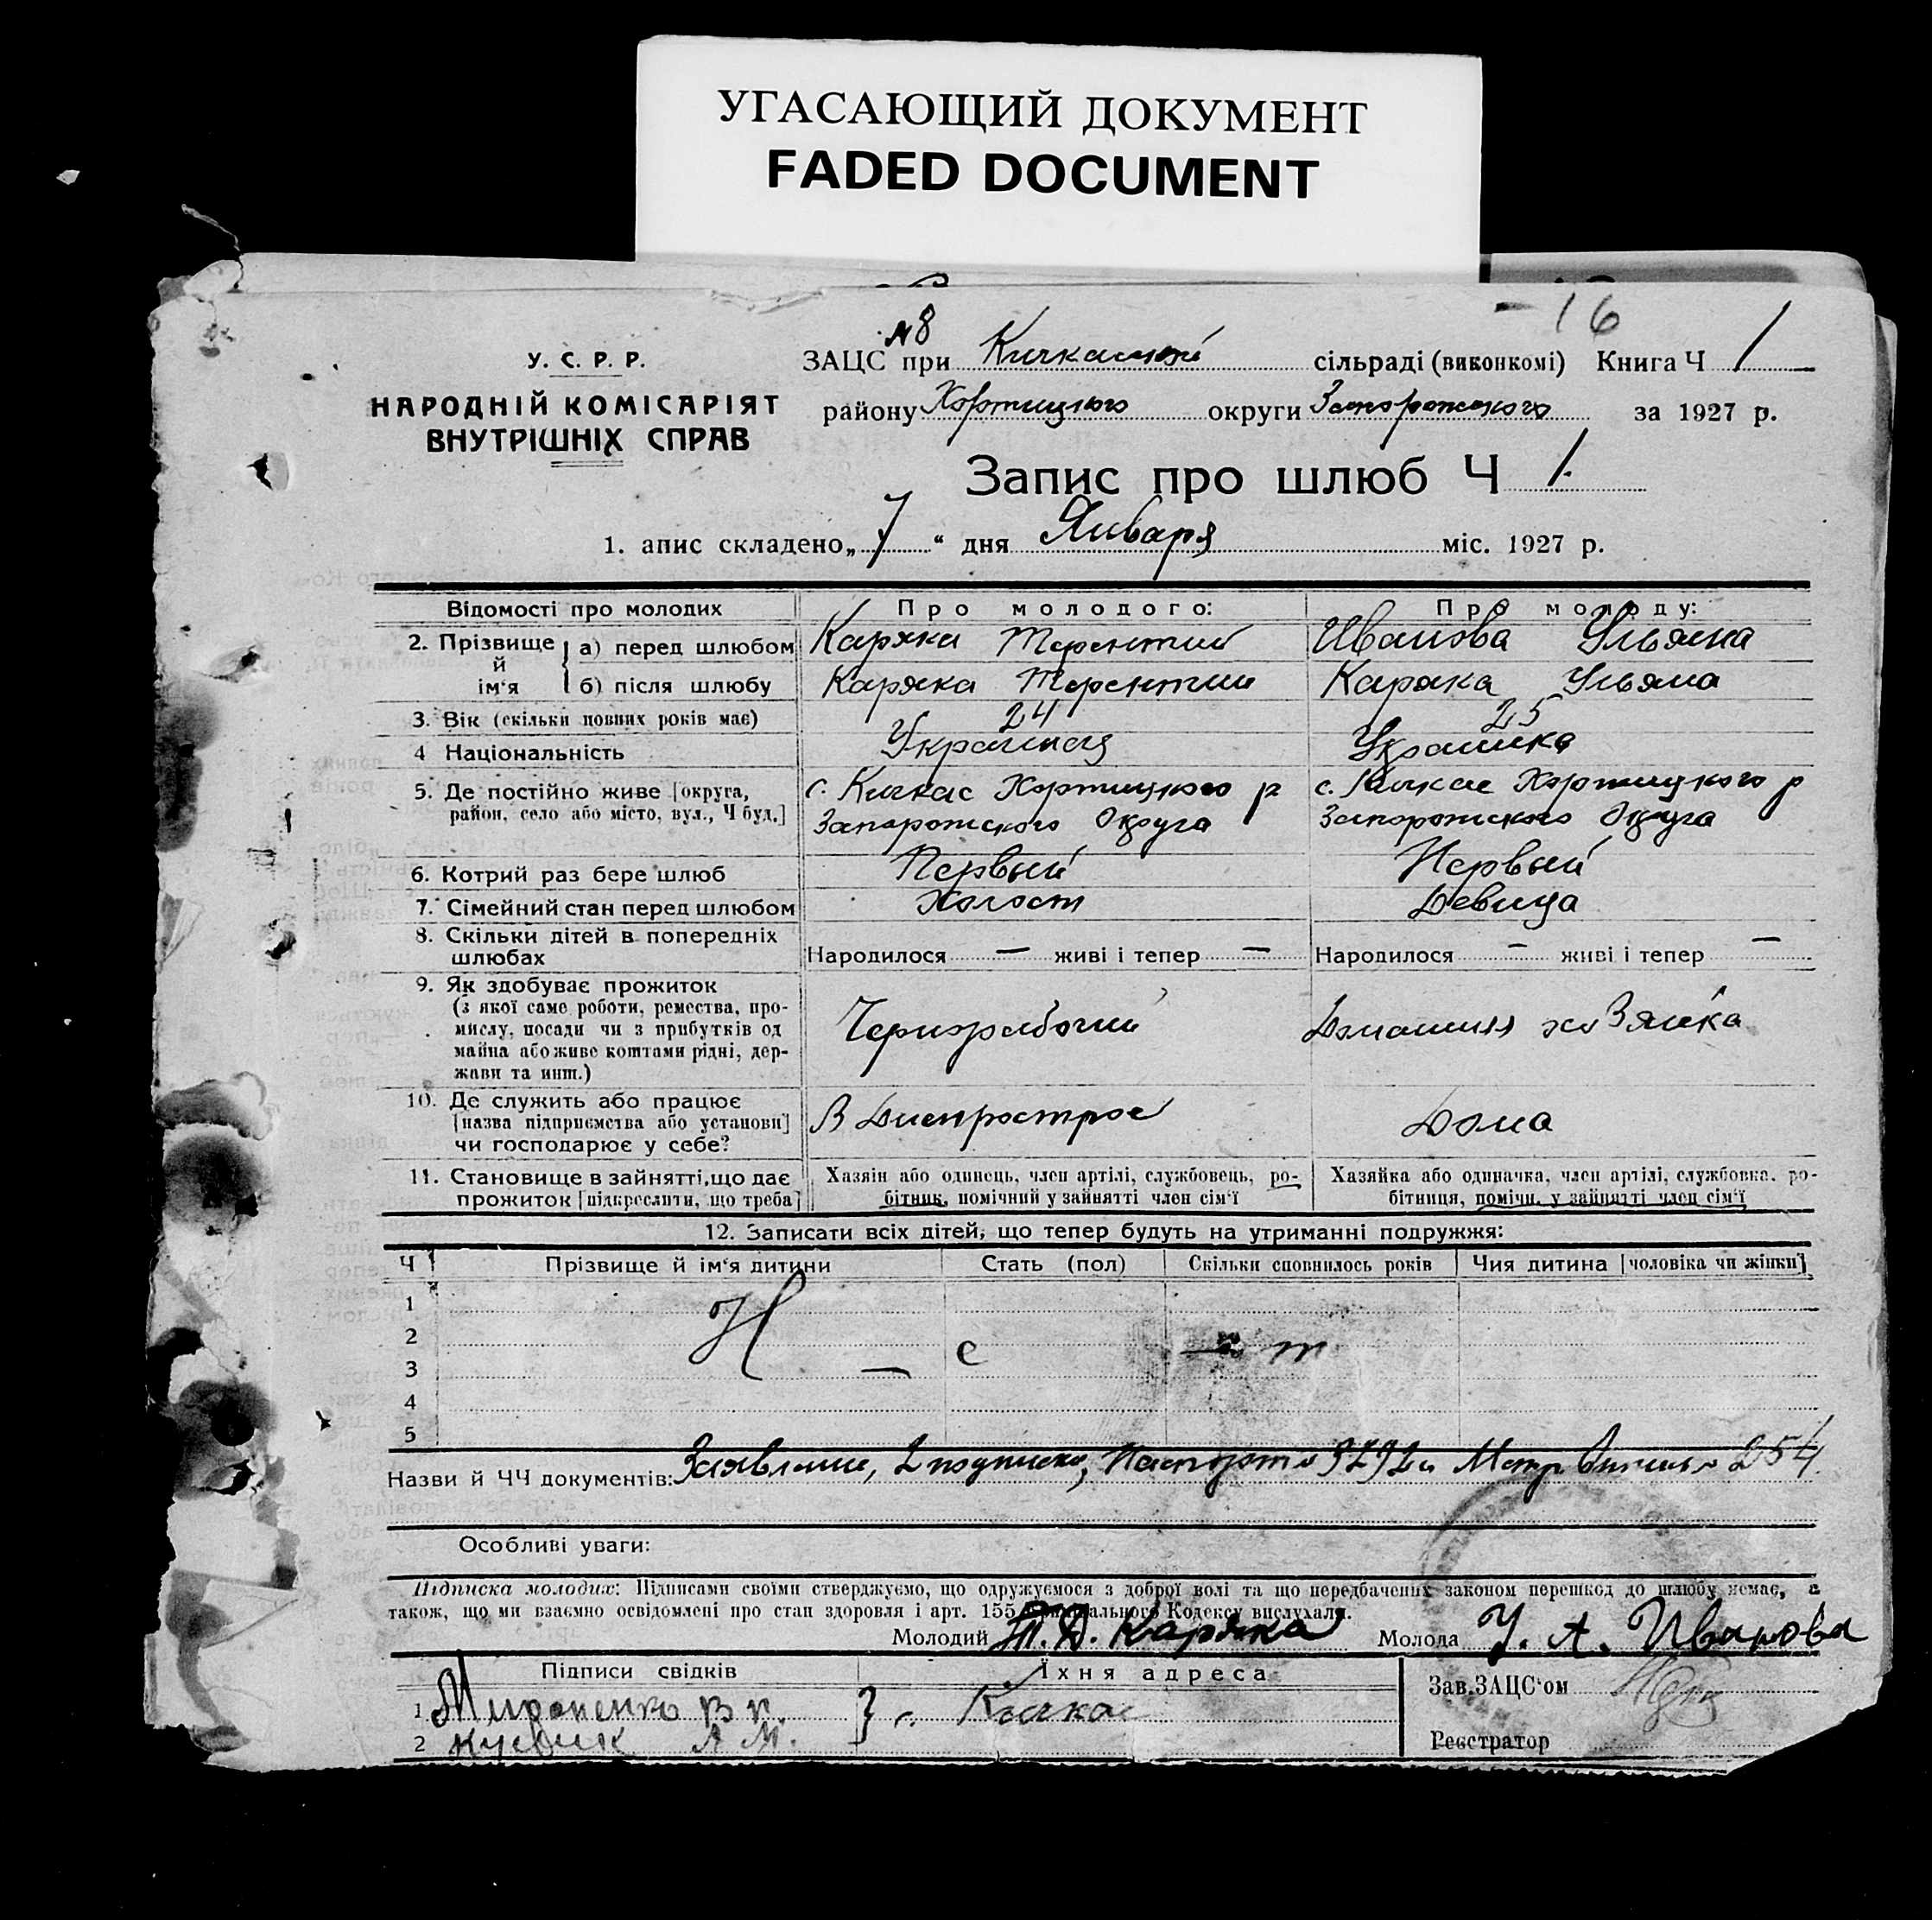 УГАСАЮЩИЙ ДОКУМЕНТ
FADED DOCUMENT
- 16
№8
У. С. Р. Р.
НАРОДНІЙ КОМІСАРІЯТ
ВНУТРІШНІХ СПРАВ
ЗАЦС при Кичкасской сільраді (виконкомі) Книга Ч 1
району Хортицкого округи Запорожского за 1927 р.
Запис про шлюб Ч 1.
1. апис складено „7“ дня Января міс. 1927 р.
Відомості про молодих Про молодого: Про молоду:
2. Прізвище й ім‘я а) перед шлюбом Каряка Терентий Иванова Ульяна
б) після шлюбу Каряка Терентий Каряка Ульяна
3. Вік (скільки повних років має) 24 25
4 Національність Украинец Украинка
5. Де постійно живе [округа, с. Кичкас Хортицкого р с. Кичкас Хортицкого р
район, село або місто, вул., Ч буд.] Запорожского Округа Запорожского Округа
6. Котрий раз бере шлюб Первый Первый
7. Сімейний стан перед шлюбом Холост Девица
8. Скільки дітей в попередніх
шлюбах Народилося — живі і тепер — Народилося — живі і тепер —
9. Як здобуває прожиток
(з якої саме роботи, ремества, про-
мислу, посади чи з прибутків од Чернорабочий Домашняя хозяйка
майна або живе коштами рідні, дер-
жави та инш.)
10. Де служить або працює
[назва підприємства або установи] В Днепрострое Дома
чи господарює у себе?
11. Становище в зайнятті, що дає Хазяін або одинець, член артілі, службовець, ро- Хазяйка або одиначка, член артілі, службовка, ро-
прожиток [підкреслити, що треба] бітник, помічний у зайнятті член сім‘ї бітниця, помічн. у зайнятті член сім‘ї
12. Записати всіх дітей, що тепер будуть на утриманні подружжя:
Ч Прізвище й ім‘я дитини Стать (пол) Скільки сповнилось років Чия дитина [чоловіка чи жінки]
1
2 Н — е — т
3
4
5
Назви й ЧЧ документів: Заявление, 2 подписки, Паспорт № и Метр Выпись № 254.
Особливі уваги:
Підписка молодих: Підписами своїми стверджуємо, що одружуємося з доброї волі та що передбачених законом перешкод до шлюбу немає, а
також, що ми взаємно освідомлені про стан здоровля і арт. 155 Кодексу вислухали.
Молодий Т. Д. Каряка Молода У. А. Иванова
Підписи свідків Їхня адреса
1 Мироненко В п. } с. Кичкас Зав.ЗАЦС‘ом
2 А М. Реєстратор